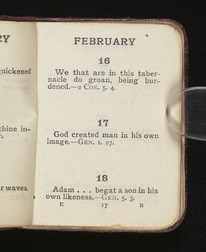 RY
quickened
thine in-
r waves.
FEBRUARY
16
We that are in this taber-
nacle do groan, being bur-
dened.—2 COR. 5. 4.
17
God created man in his own
image.—GEN. 1. 27.
18
Adam . . . begat a son in his
own likeness.—GEN. 5. 3.
E 17 B